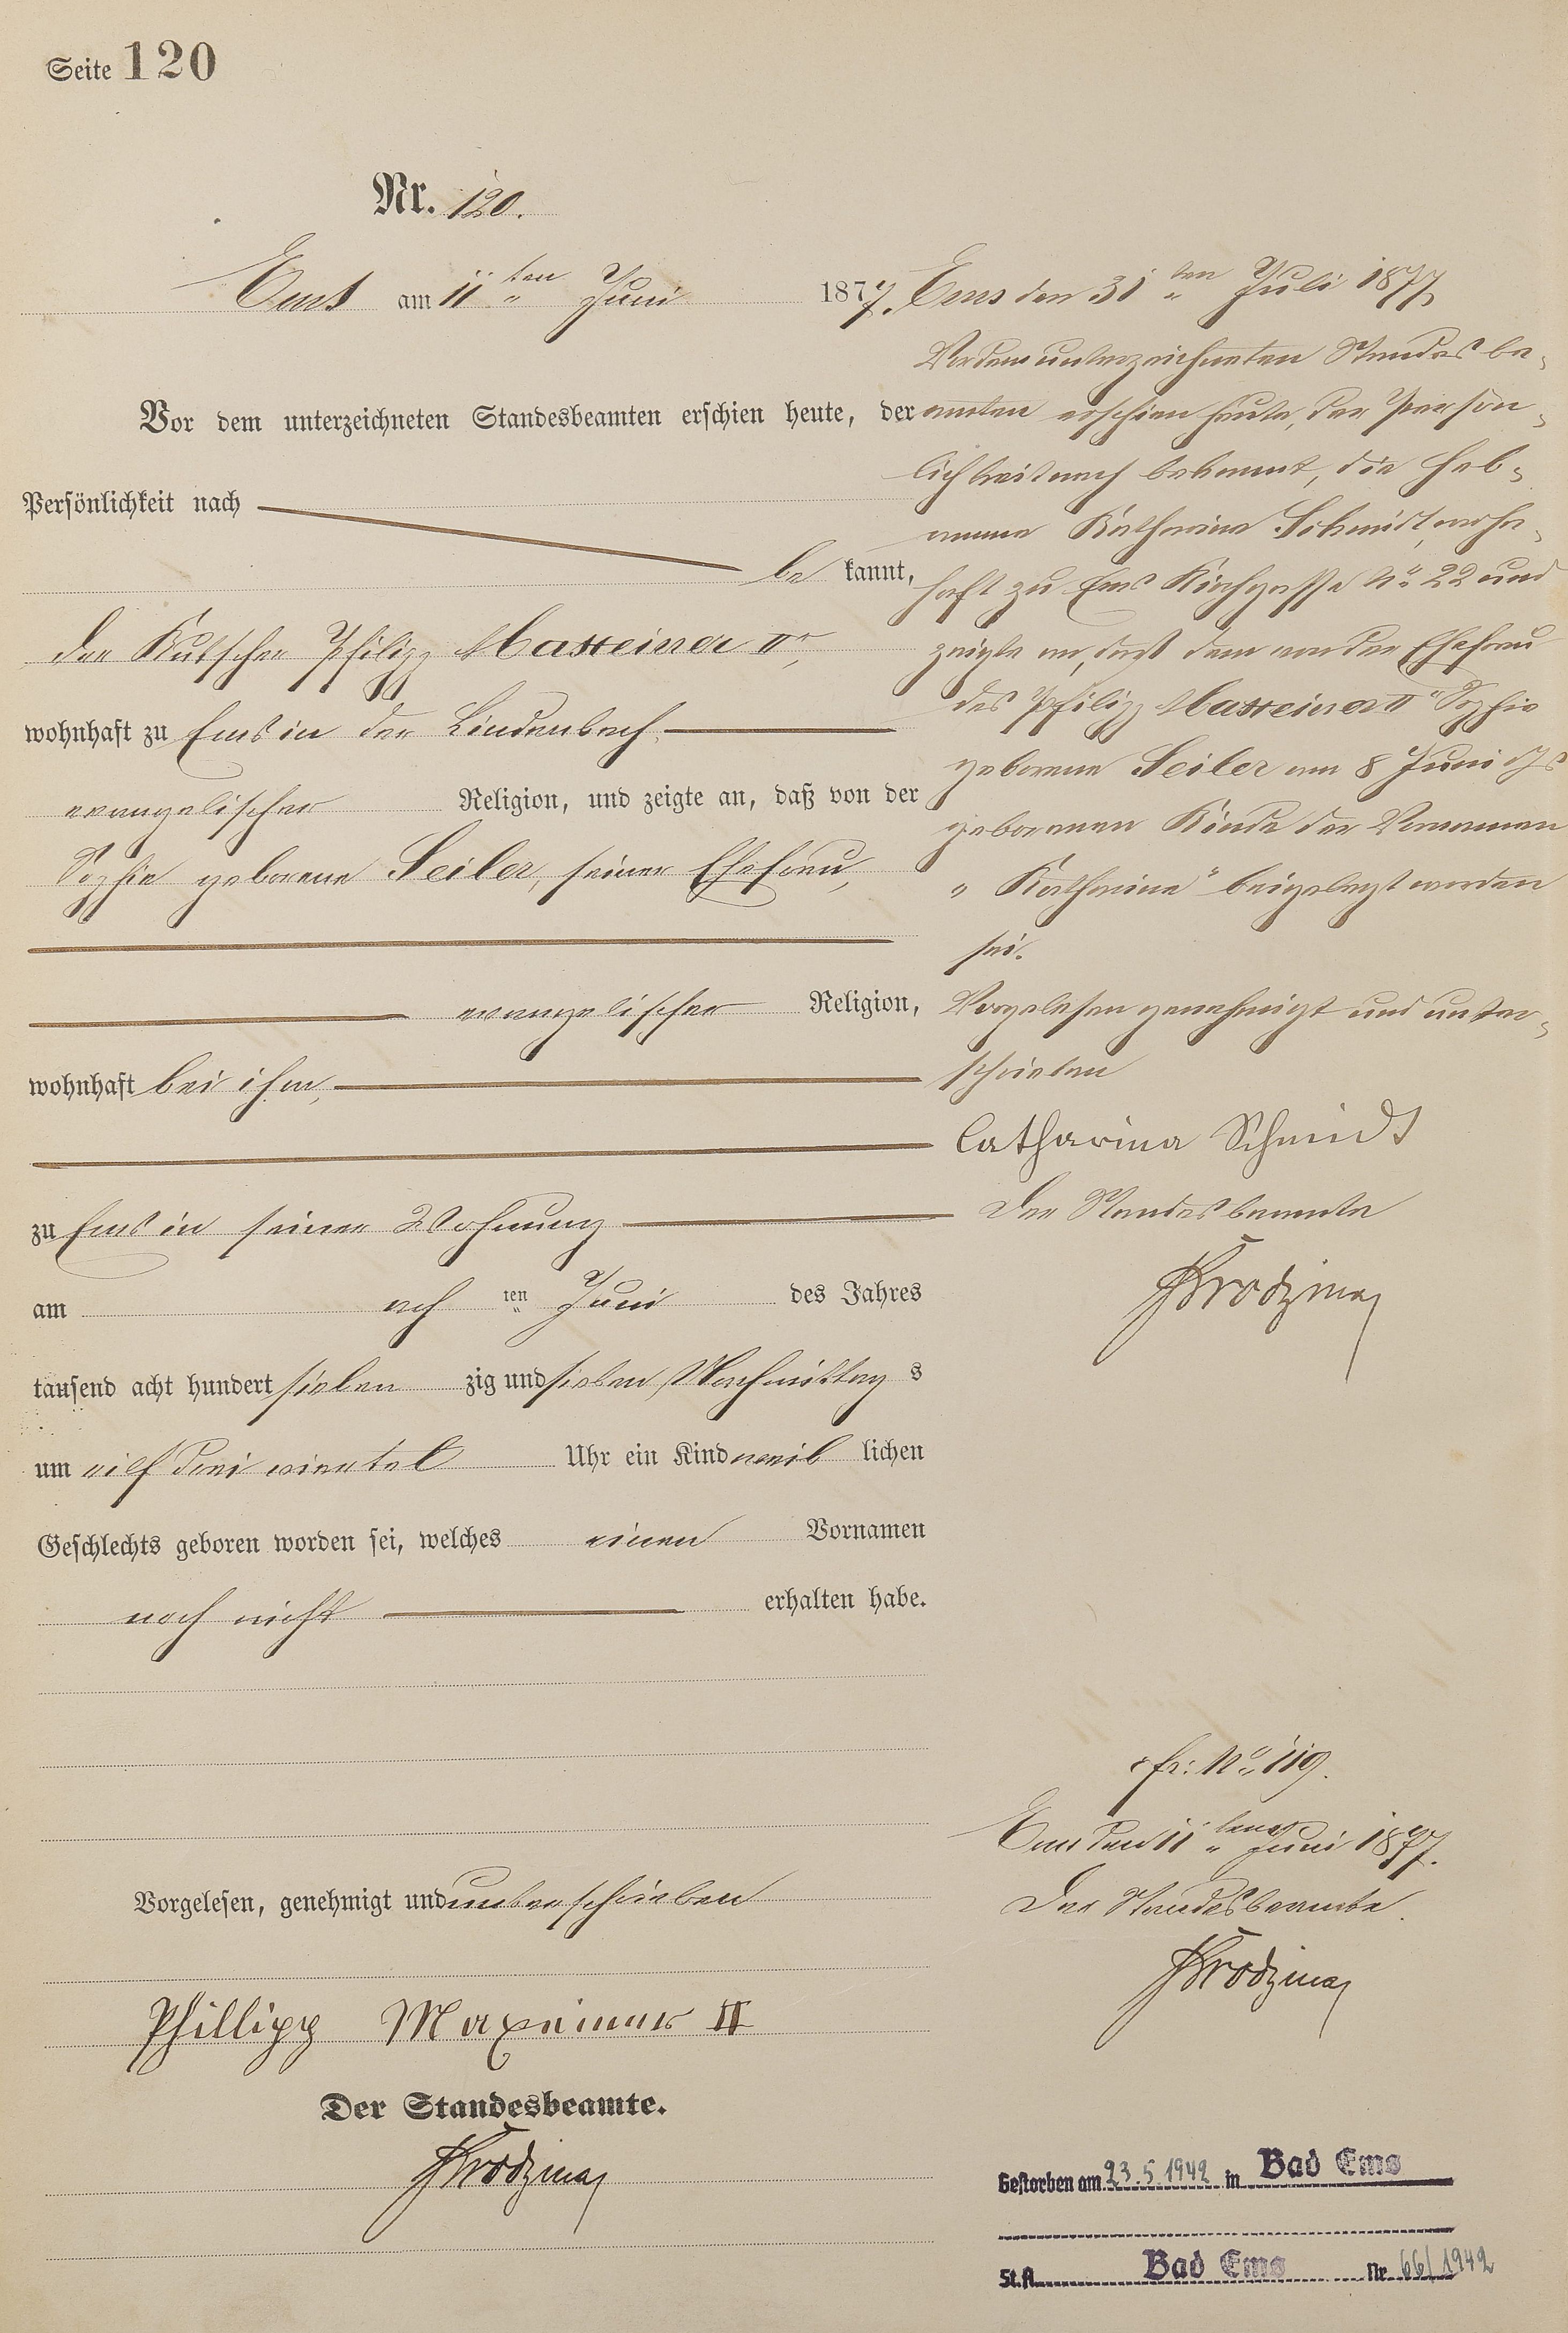 Seite 120
Nr. 120.
Ems am 11ten Juni 1877.
Vor dem unterzeichneten Standesbeamten erschien heute, der
Persönlichkeit nach
be kannt,
der Kutscher Philipp Maxeiner IIr,
wohnhaft zu Ems in der Lindenbach
evangelischer Religion, und zeigte an, daß von der
Sophie geborene Seiler, seiner Ehefrau,
evangelischer Religion,
wohnhaft bei ihm,
zu Ems in seiner Wohnung
am ach ten Juni des Jahres
tausend acht hundert sieben zig und sieben Nachmittag s
um eilf drei viertel Uhr ein Kind weib lichen
Geschlechts geboren worden sei, welches einen Vornamen
noch nicht erhalten habe.
Vorgelesen, genehmigt und unterschrieben
Phillipp Maxeiner II
Der Standesbeamte.
Ems den 31ten Juli 1877,
Vor dem unterzeichneten Standesbe-
amten erschien heute, der Person-
lichkeit nach bekannt, die Heb-
amme Katharina Schmidt, wohn-
haft zu Ems Kirchgasse No. 22 und
zeigte an, daß dem von der Ehefrau
des Philipp Maxeiner II Sophie
geborene Seiler am 8 Juni djs
geborenen Kinde der Vornamen
"Katharine" beigelegt worden
sei.
Vorgelesen genehmigt und unter-
schrieben
Catharina Schmidt
Der Standesbeamte
cfr: No. 119.
Ems den 11ten Juni 1877.
Der Standesbeamte.
Gestorben am 23.5.1942 in Bad Ems
St.A. Bad Ems Nr. 66/1942